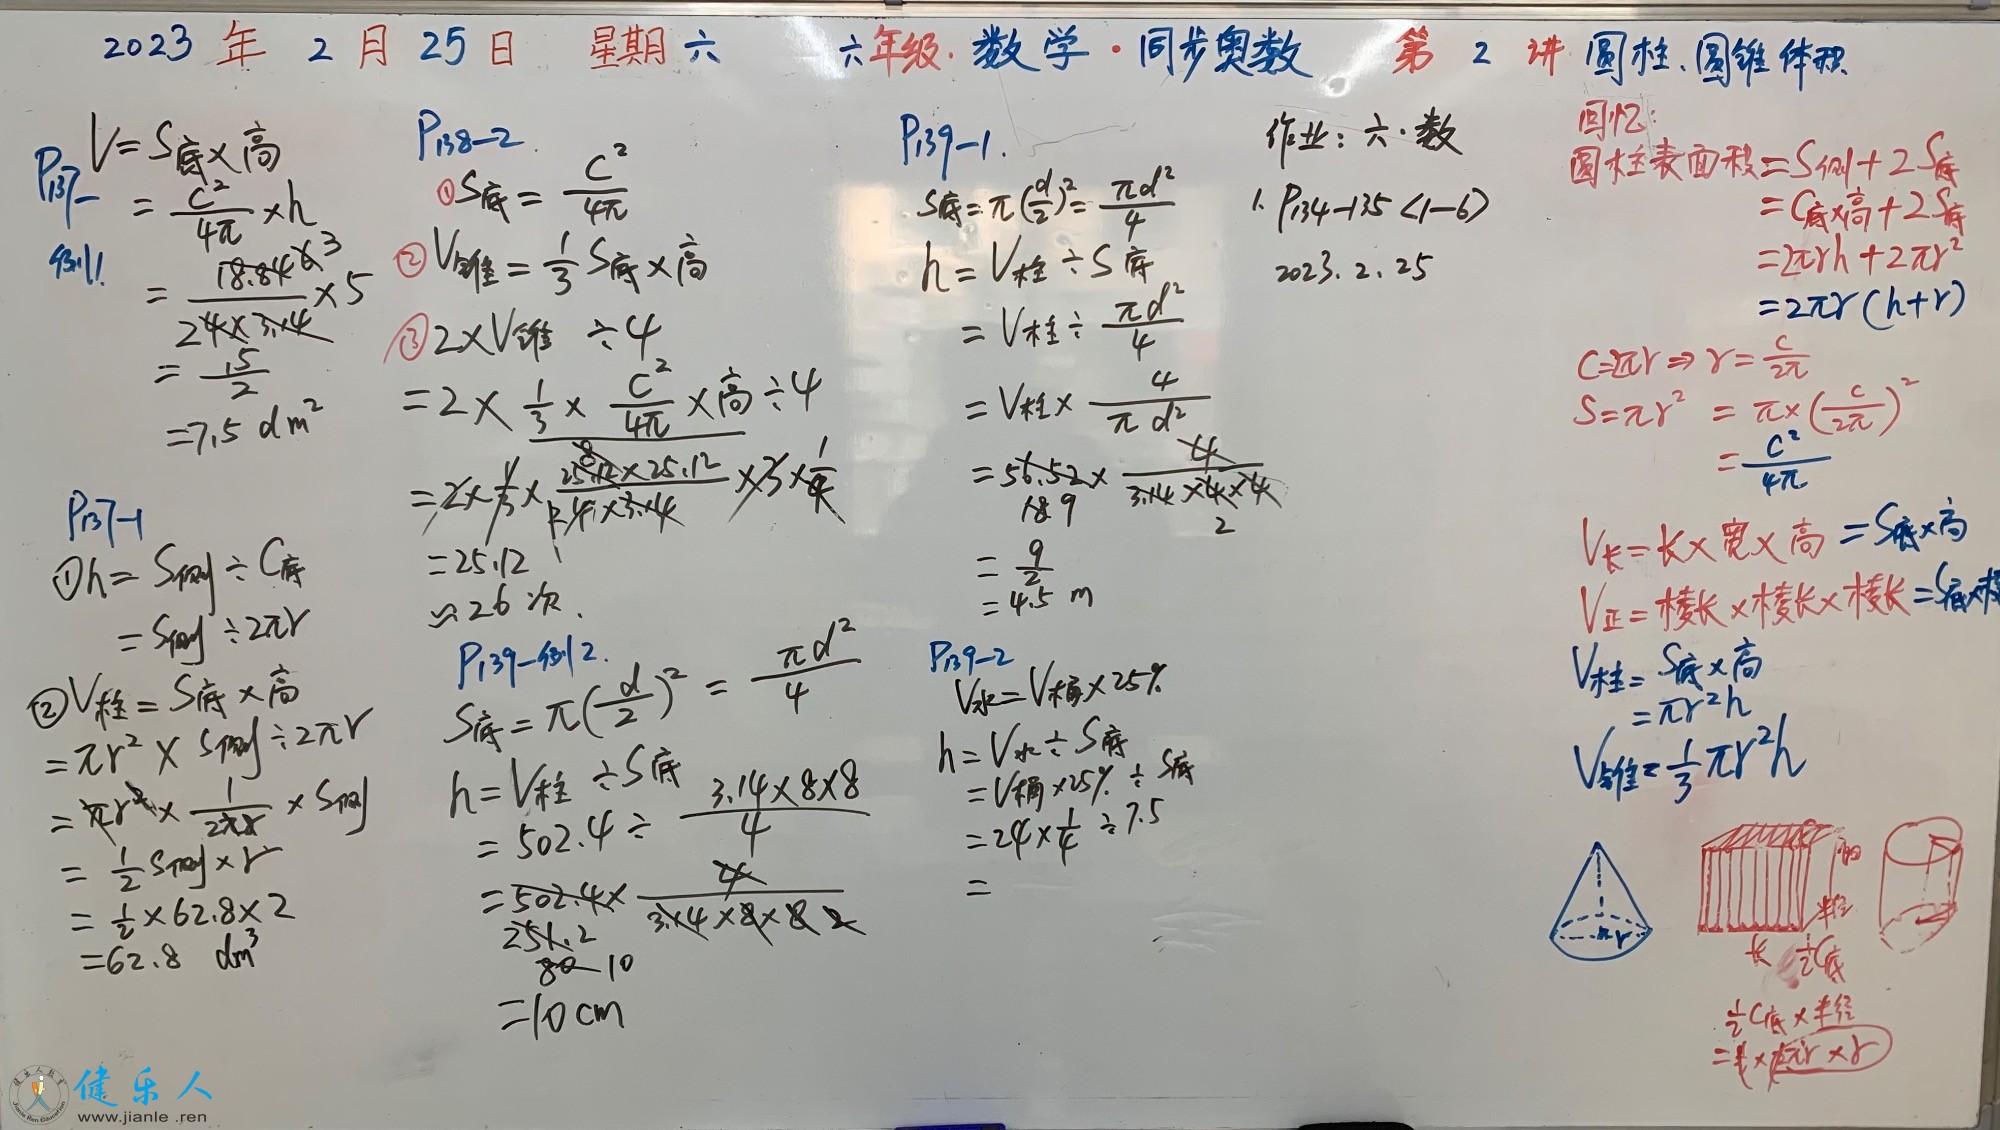 2023 年 2 月 25 日 星期六 六年级·数学·同步奥数 第 2 讲 圆柱、圆锥体积
P137-例1
V=S底×高
=C²/4π×h
=18.84×6/4×3.14×5
=15/2
=7.5 dm²
P137-1
①h=S侧÷C底
=S侧÷2πr
②V柱=S底×高
=πr²×S侧÷2πr
=πr²×1/2πr×S侧
=1/2S侧×r
=1/2×62.8×2
=62.8 dm³
P138-2
①S底=C²/4π
②V锥=1/3S底×高
③2×V锥÷4
=2×1/3×C²/4π×高÷4
=2×1/3×25.12×25.12/4×3.14×3×1/4
=25.12
≈26次.
P139-例2.
S底=π(d/2)²=πd²/4
h=V柱÷S底
=502.4÷3.14×8×8/4
=502.4×4/3.14×8×8
251.2
80 10
=10cm
P139-1.
S底=π(d/2)²=πd²/4
h=V柱÷S底
=V柱÷πd²/4
=V柱×4/πd²
=56.52×4/3.14×4×4
18 9 2
=9/2
=4.5 m
P139-2
V水=V桶×25%
h=V水÷S底
=V桶×25%÷S底
=24×1/4÷7.5
=
作业:六·数
1. P134-135<1-6>
2023.2.25
回忆:
圆柱表面积=S侧+2S底
=C底×高+2S底
=2πrh+2πr²
=2πr(h+r)
C=2πr⇒r=C/2π
S=πr²=π×(C/2π)²
=C²/4π
V长=长×宽×高=S底×高
V正=棱长×棱长×棱长=S底×棱
V柱=S底×高
=πr²h
V锥=1/3πr²h
r
半径
长 1/2C底
1/2C底×半径
健乐人
www.jianle.ren